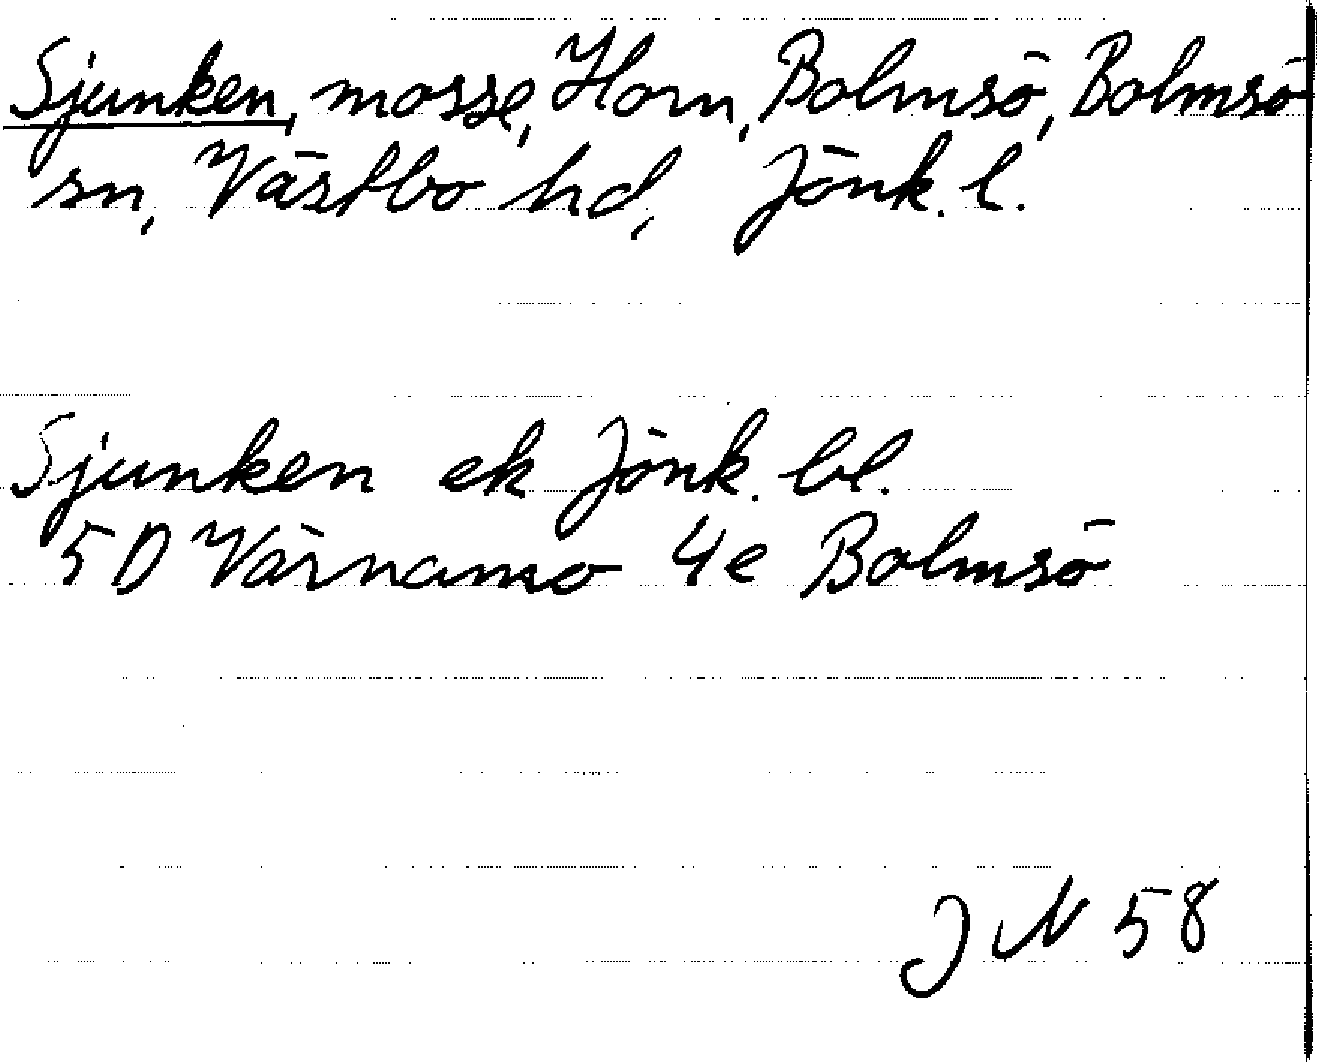 Sjunken, mosse, Horn, Bolmsö, Bolmsö
sn, Västbo hd, Jönk. l.
Sjunken ek Jönk. bl.
5D Värnamo 4e Bolmsö
JN 58